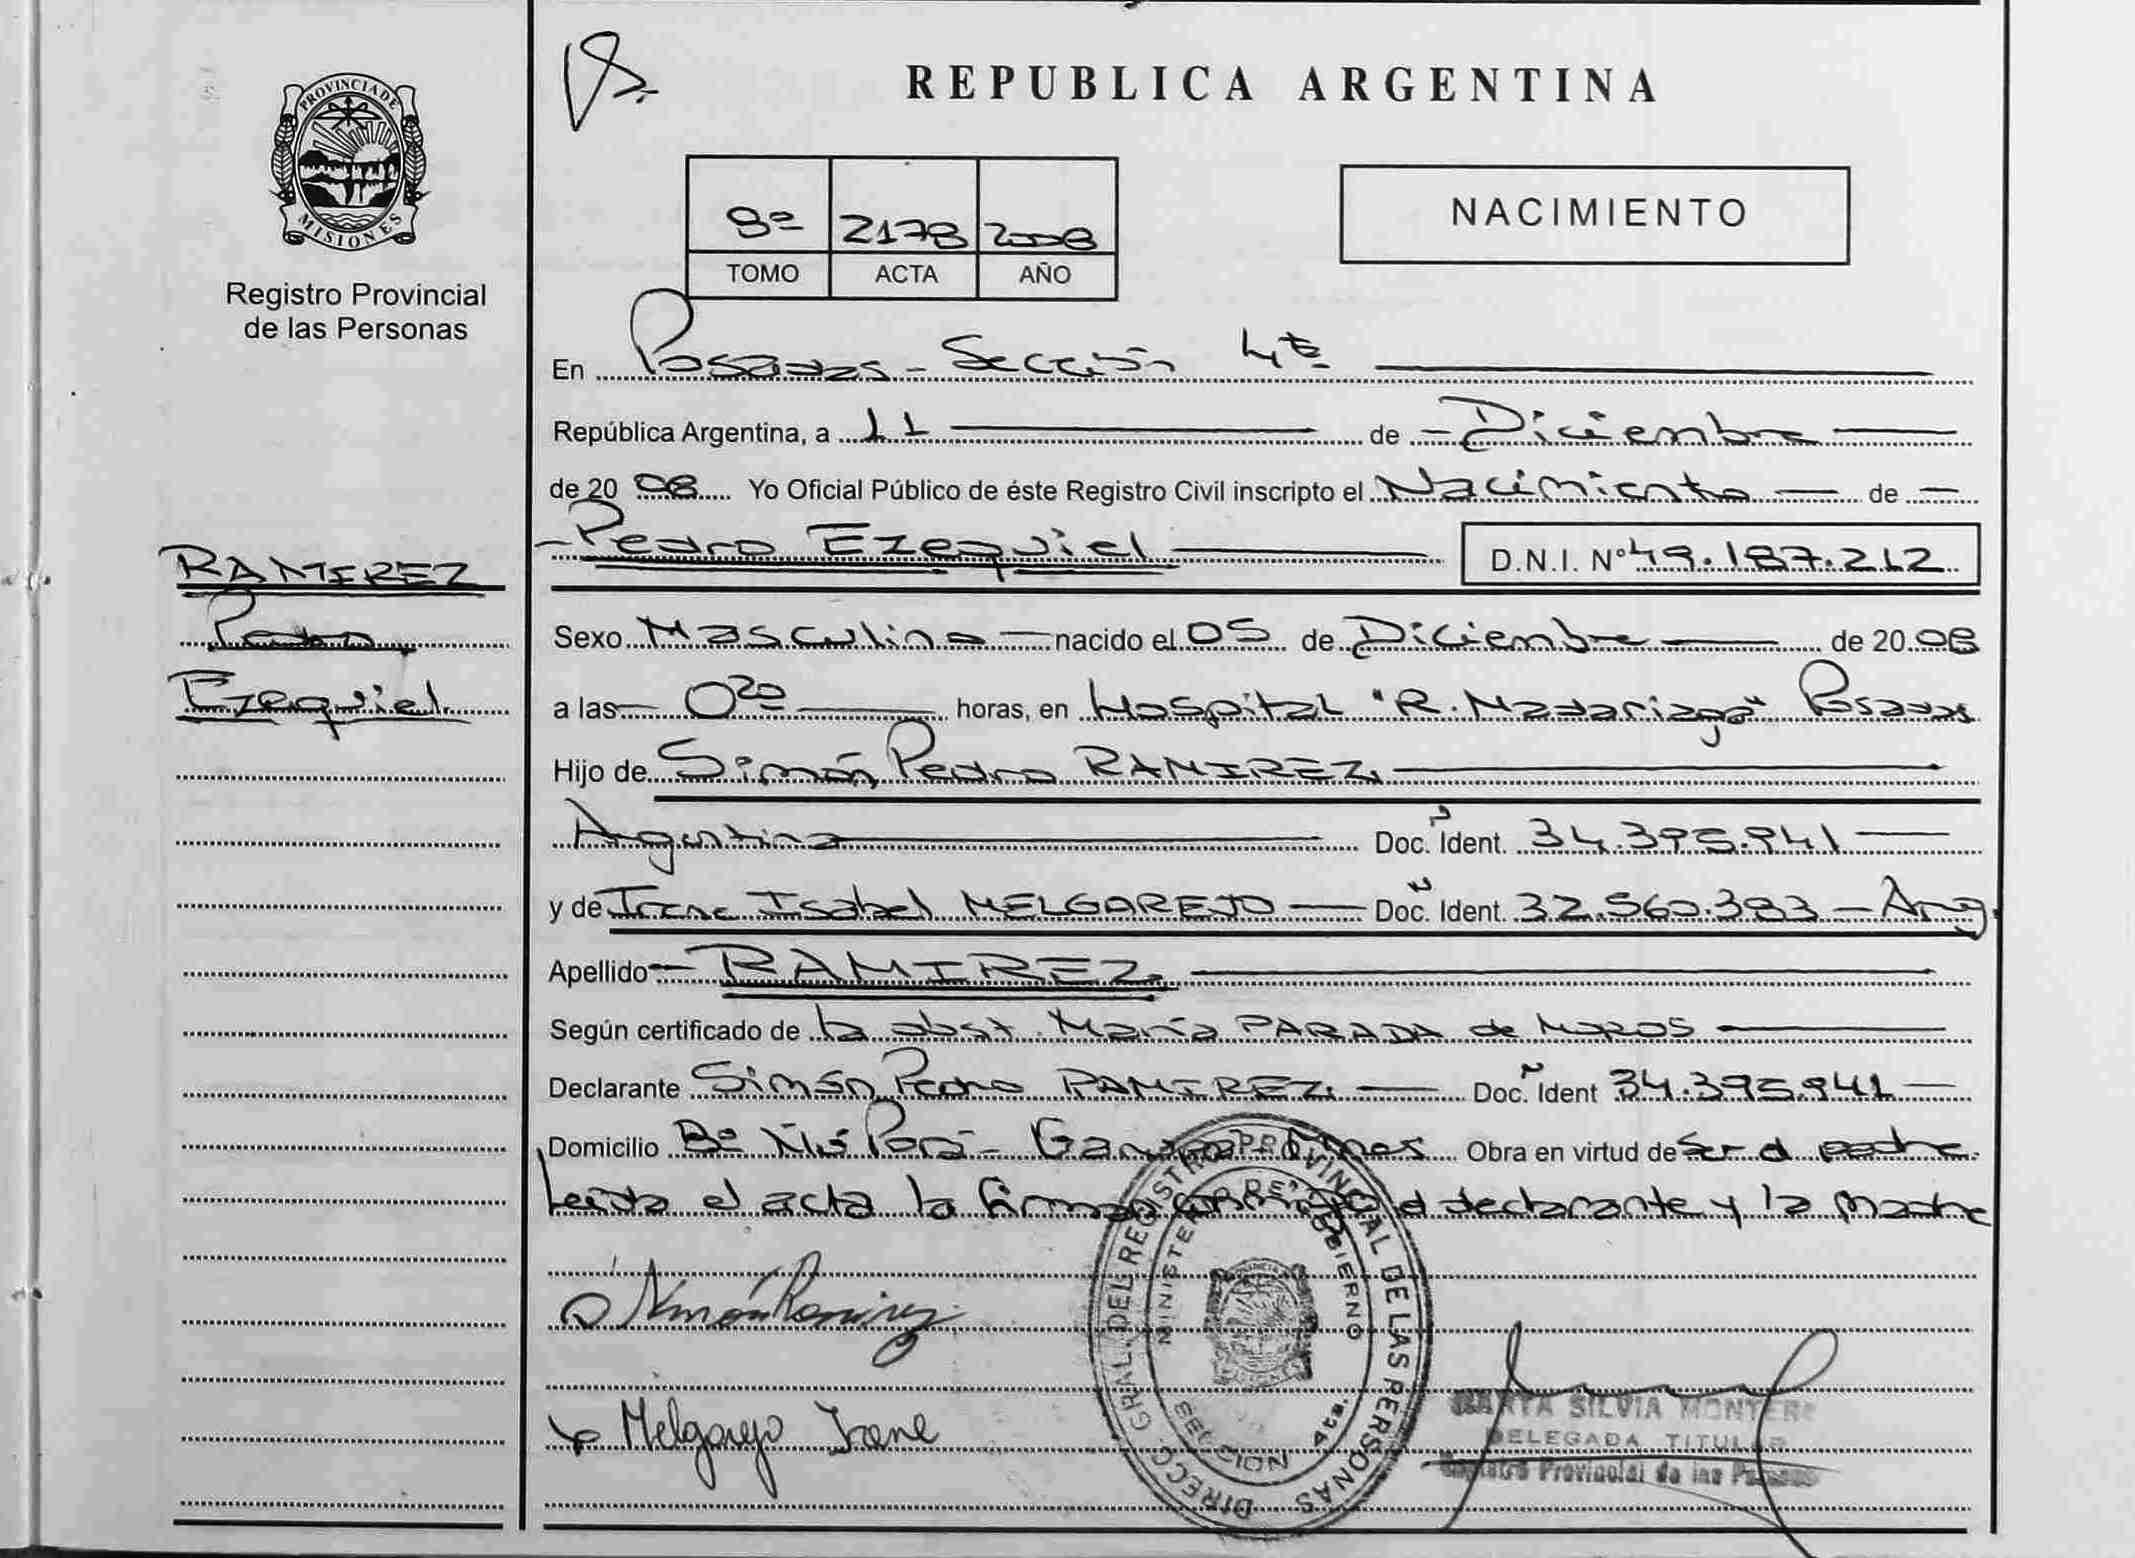 PROVINCIA DE
MISIONES
Registro Provincial
de las Personas
RAMIREZ
Pedro
Ezequiel
REPUBLICA ARGENTINA
9º 2178 2008
TOMO ACTA AÑO
NACIMIENTO
En Posadas - Sección 4ta
República Argentina, a 11 de Diciembre
de 2008 Yo Oficial Público de éste Registro Civil inscripto el Nacimiento de
Pedro Ezequiel D.N.I. Nº 49.187.212
Sexo Masculino nacido el 05 de Diciembre de 2008
a las 0:20 horas, en Hospital "R. Madariaga" Posadas
Hijo de Simón Pedro RAMIREZ
Argentina Doc. Ident. 34.395.941
y de Irene Isabel MELGAREJO Doc. Ident. 32.560.383 - Arg.
Apellido RAMIREZ
Según certificado de la obst. María PARADA de
Declarante Simón Pedro RAMIREZ Doc. Ident 34.395.941
Domicilio Bº Porá - Obra en virtud de ser el padre
Leída el acta la firman conmigo el declarante y la madre
Simón Ramirez
Melgarejo Irene
DIRECC. GRAL. DEL REGISTRO PROVINCIAL DE LAS PERSONAS
MINISTERIO DE GOBIERNO
SECCION 4ta.
MARTA SILVIA MONTERO
DELEGADA TITULAR
Registro Provincial de las Personas